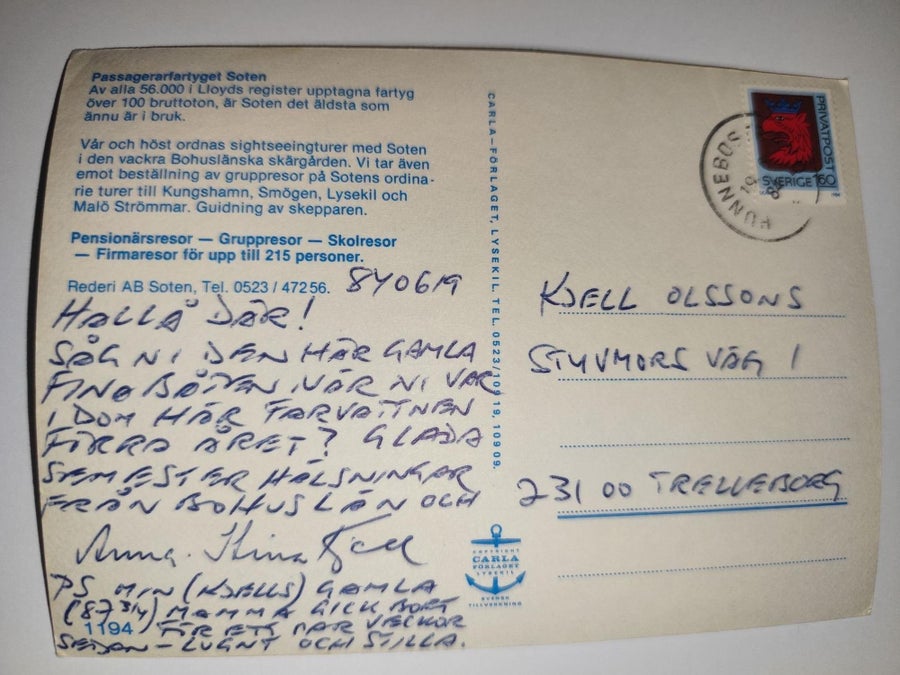 Passagerarfartyget Soten
Av alla 56.000 i Lloyds register upptagna fartyg
över 100 bruttoton, är Soten det äldsta som
ännu är i bruk.
Vår och höst ordnas sightseeingturer med Soten
i den vackra Bohuslänska skärgården. Vi tar även
emot beställning av gruppresor på Sotens ordina-
rie turer till Kungshamn, Smögen, Lysekil och
Malö Strömmar. Guidning av skepparen.
Pensionärsresor — Gruppresor — Skolresor
— Firmaresor för upp till 215 personer.
Rederi AB Soten, Tel. 0523 / 472 56.
840619
HALLÅ DÄR!
SÅG NI DEN HÄR GAMLA
FINA BÅTEN NÄR NI VAR
I DOM HÄR FARVATTNEN
FÖRRA ÅRET? GLADA
SEMESTER HÄLSNINGAR
FRÅN BOHUSLÄN OCH
Anna-Stina Kjell
PS MIN (KJELLS) GAMLA
(87 3/4) MAMMA GICK BORT
FÖR ETT PAR VECKOR
SEDAN – LUGNT OCH STILLA.
1194
CARLA-FÖRLAGET, LYSEKIL. TEL. 0523/109 19, 109 09.
COPYRIGHT
CARLA
FÖRLAGET
LYSEKIL
SVENSK
TILLVERKNING
PRIVATPOST
SVERIGE 160
HUNNEBOS
KJELL OLSSONS
STYVMORS VÄG 1
231 00 TRELLEBORG